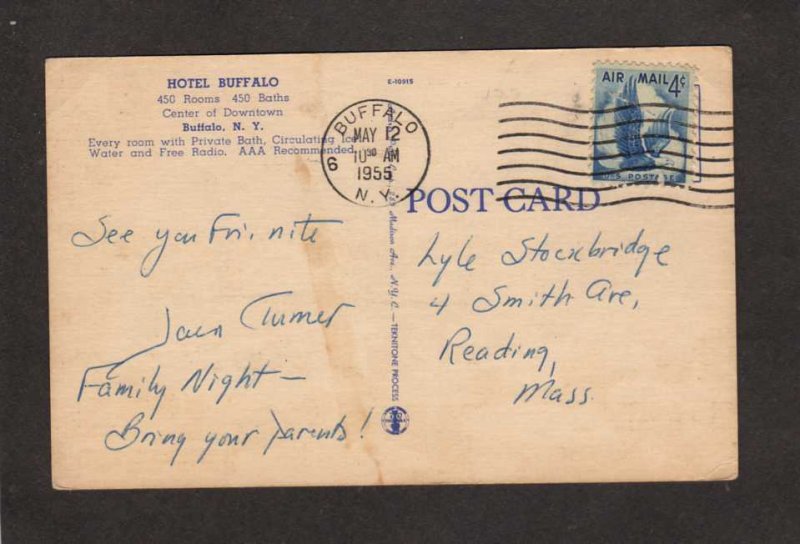 HOTEL BUFFALO
450 Rooms 450 Baths
Center of Downtown
Buffalo, N. Y.
Every room with Private Bath, Circulating Ice
Water and Free Radio. AAA Recommended.
E-10915
BUFFALO
MAY 12
10 30 AM
1955
N. Y.
6
AIR MAIL 4¢
U.S. POSTAGE
POST CARD
Madison Ave., N.Y.C. — TEKNITONE PROCESS
See you Fri. nite
Turner
Family Night —
Bring your parents!
Lyle Stockbridge
4 Smith Ave,
Reading,
Mass.